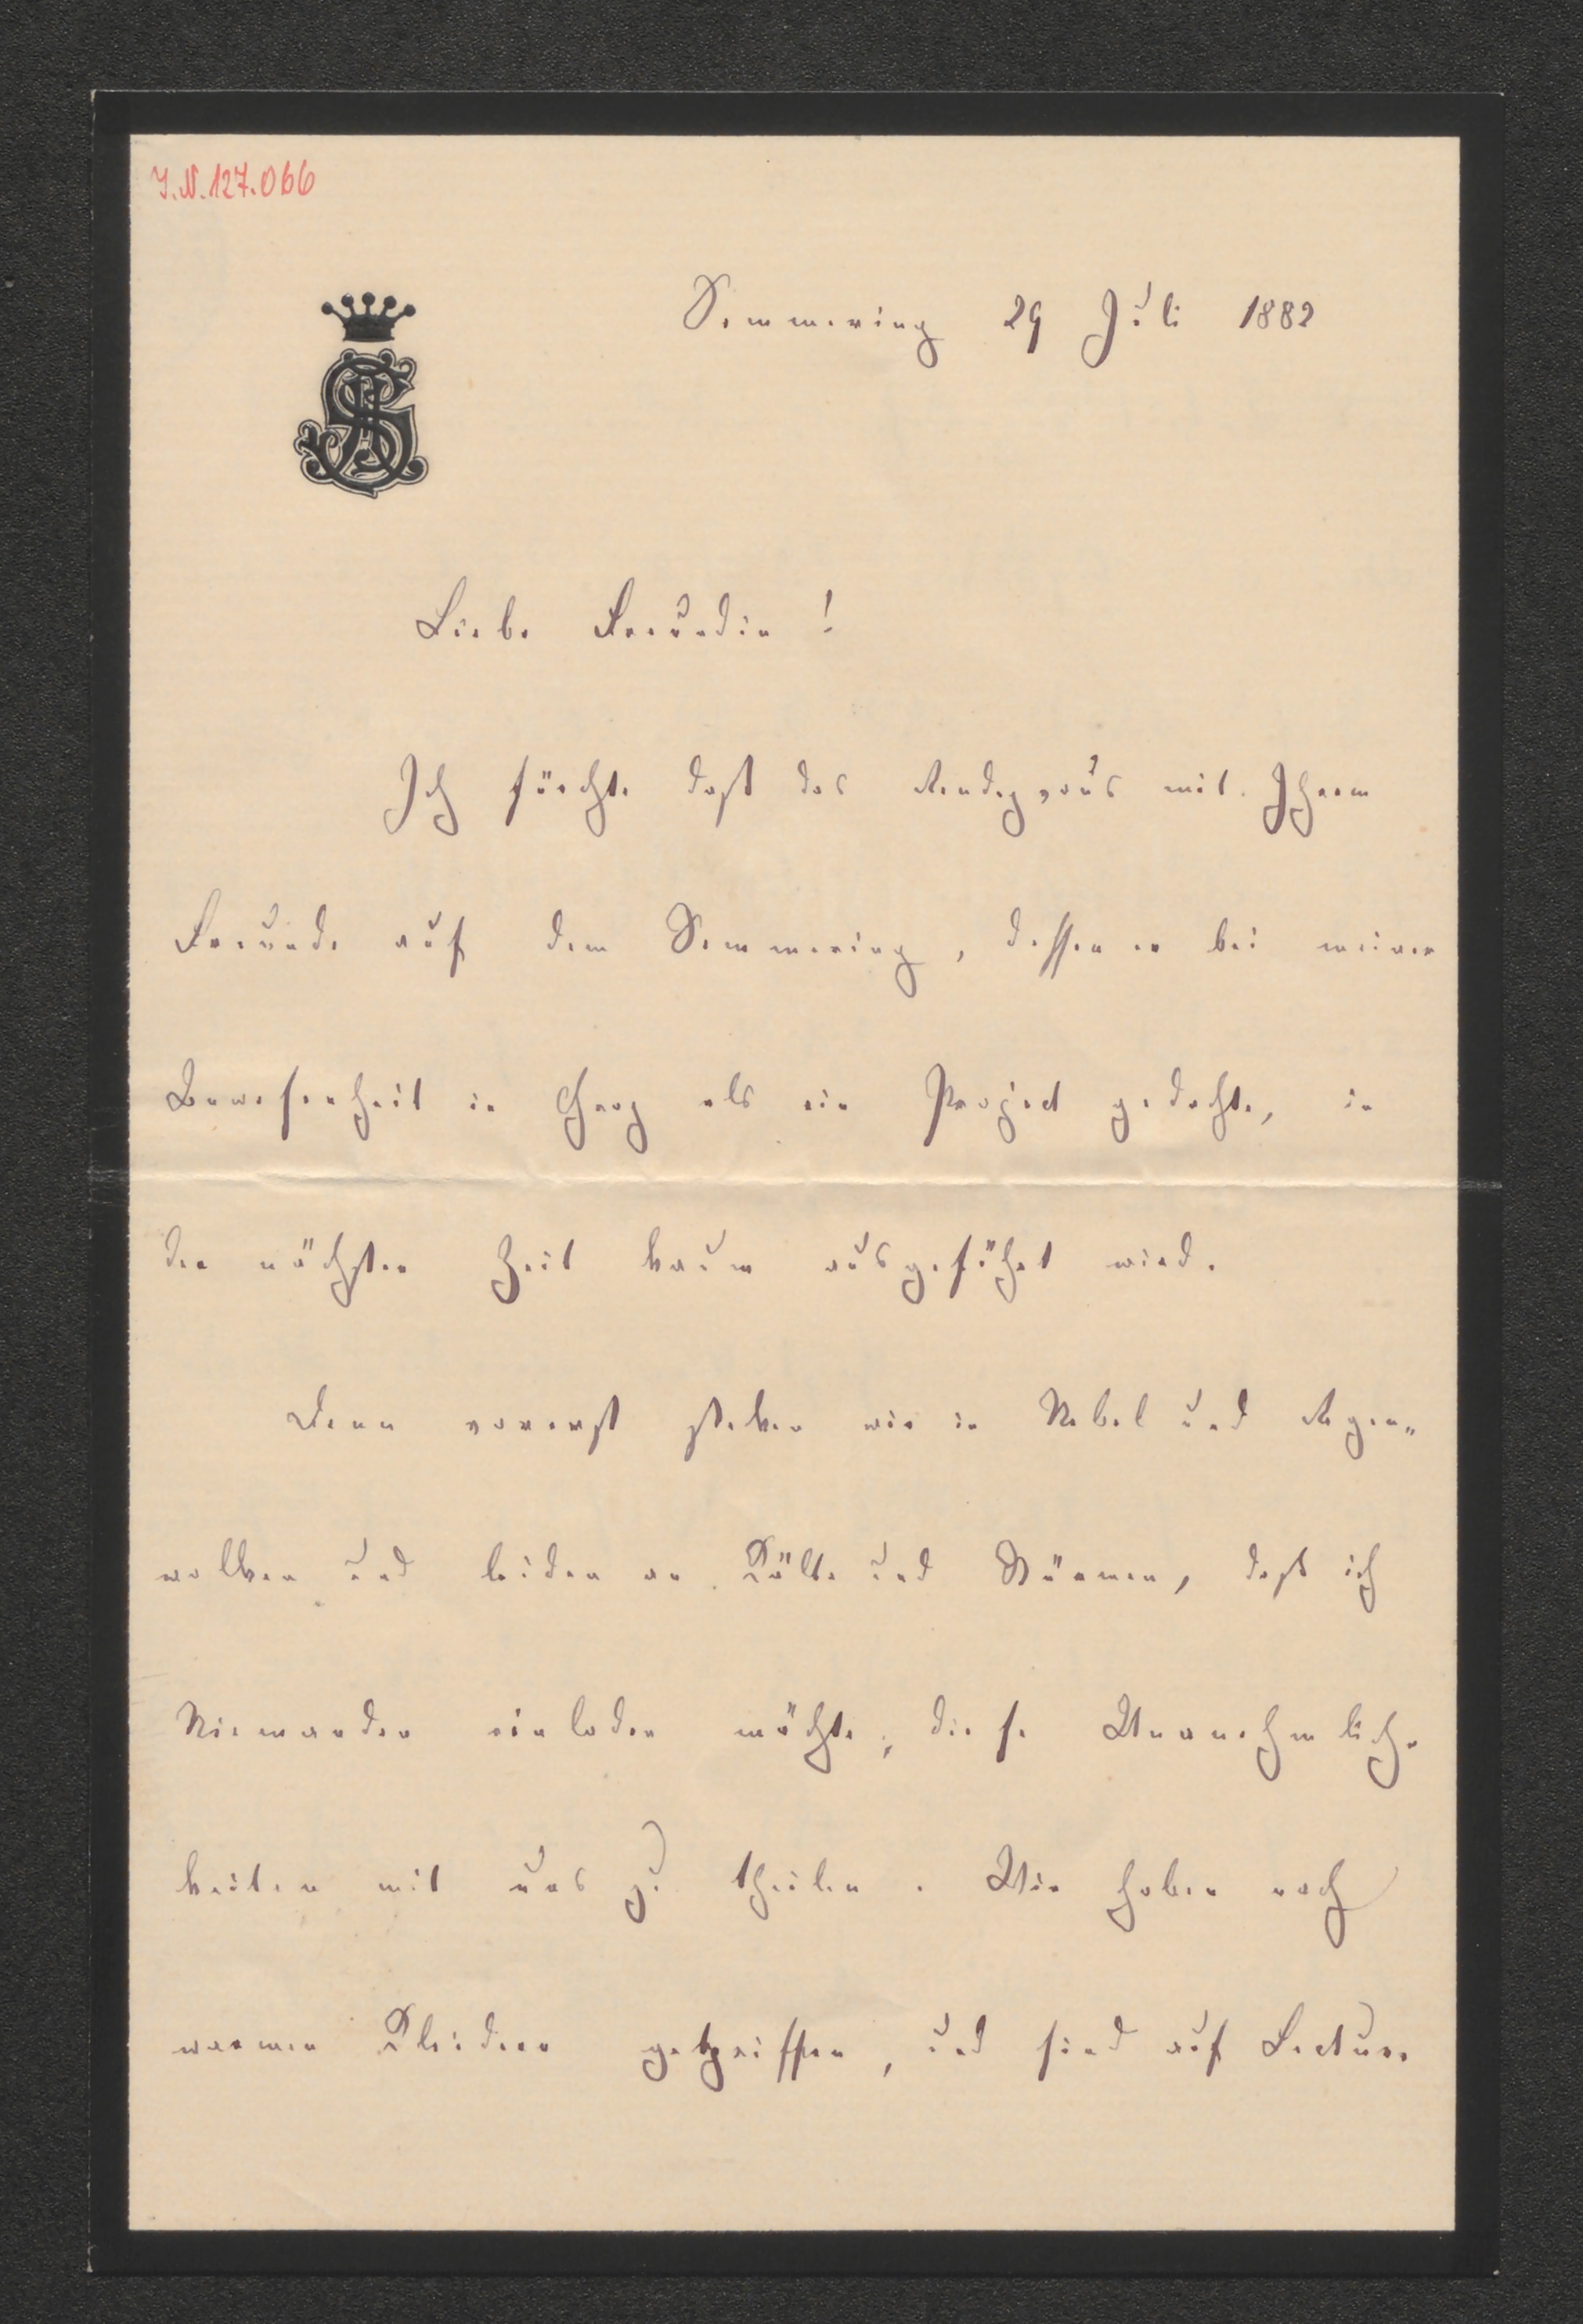 I.N. 127.066
Semmering 29 Juli 1882
AS
Liebe Freundin!
Ich fürchte daß das Rendezvous mit Ihrem
Freunde auf dem Semmering, dessen er bei meiner
Anwesenheit in als ein Project gedachte, in
der nächsten Zeit kaum ausgeführt wird.
Denn vorerst stecken wir in Nebel und Regen„
wolken und leiden an Kälte und Stürmen, daß ich
Niemanden einladen möchte, diese Unannehmlich-
keiten mit uns zu theilen. Wir haben nach
warmen Kleidern gegriffen, und sind auf Lecture